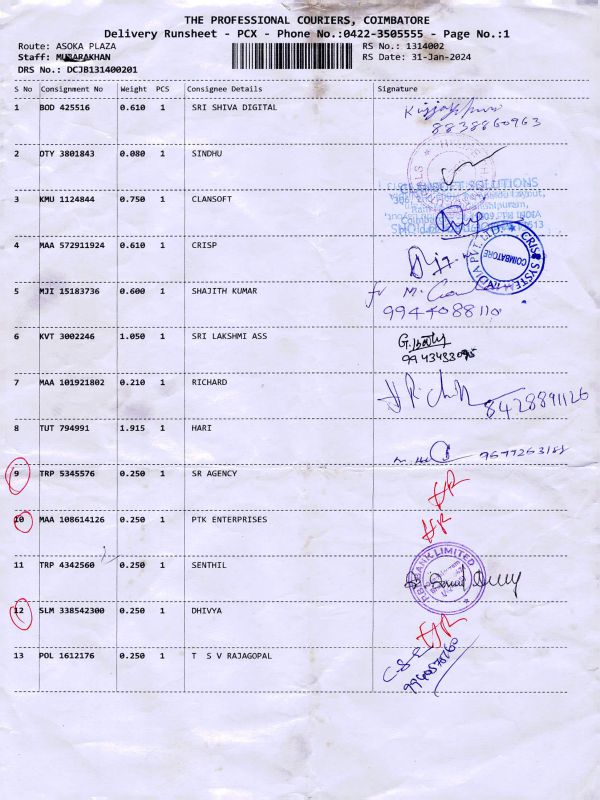 THE PROFESSIONAL COURIERS, COIMBATORE
Delivery Runsheet - PCX - Phone No.:0422-3505555 - Page No.:1
Route: ASOKA PLAZA RS No.: 1314002
Staff: MUBARAKHAN RS Date: 31-Jan-2024
DRS No.: DCJB131400201
S No Consignment No Weight PCS Consignee Details Signature
1 BOD 425516 0.610 1 SRI SHIVA DIGITAL
8838860963
2 DTY 3801843 0.080 1 SINDHU
CLANSOFT SOLUTIONS
3 KMU 1124844 0.750 1 CLANSOFT
4 MAA 572911924 0.610 1 CRISP
CRISP SYSTEMS INDIA PVT. LTD. COIMBATORE
5 MJI 15183736 0.600 1 SHAJITH KUMAR
9944088110
6 KVT 3002246 1.050 1 SRI LAKSHMI ASS
9943433095
7 MAA 101921802 0.210 1 RICHARD
8428891126
8 TUT 794991 1.915 1 HARI
9 TRP 5345576 0.250 1 SR AGENCY
10 MAA 108614126 0.250 1 PTK ENTERPRISES
11 TRP 4342560 0.250 1 SENTHIL
BANK LIMITED
12 SLM 338542300 0.250 1 DHIVYA
13 POL 1612176 0.250 1 T S V RAJAGOPAL